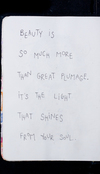 BEAUTY IS
SO MUCH MORE
THAN GREAT PLUMAGE.
IT'S THE LIGHT
THAT SHINES
FROM YOUR SOUL.